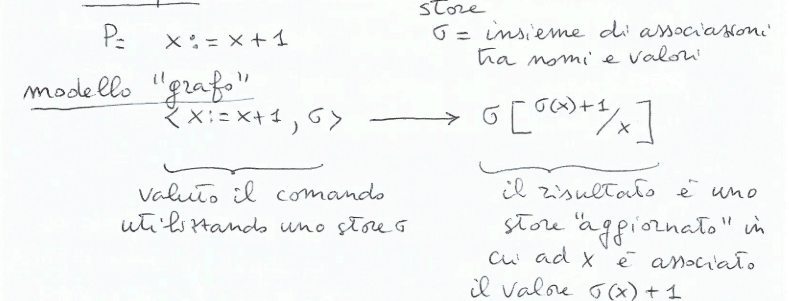 store
P= x := x + 1
σ = insieme di associazioni
tra nomi e valori
modello "grafo"
< x := x+1 , σ > ⟶ σ [ σ(x)+1/x ]
valuto il comando
utilizzando uno store σ
il risultato è uno
store "aggiornato" in
cui ad x è associato
il valore σ(x) + 1